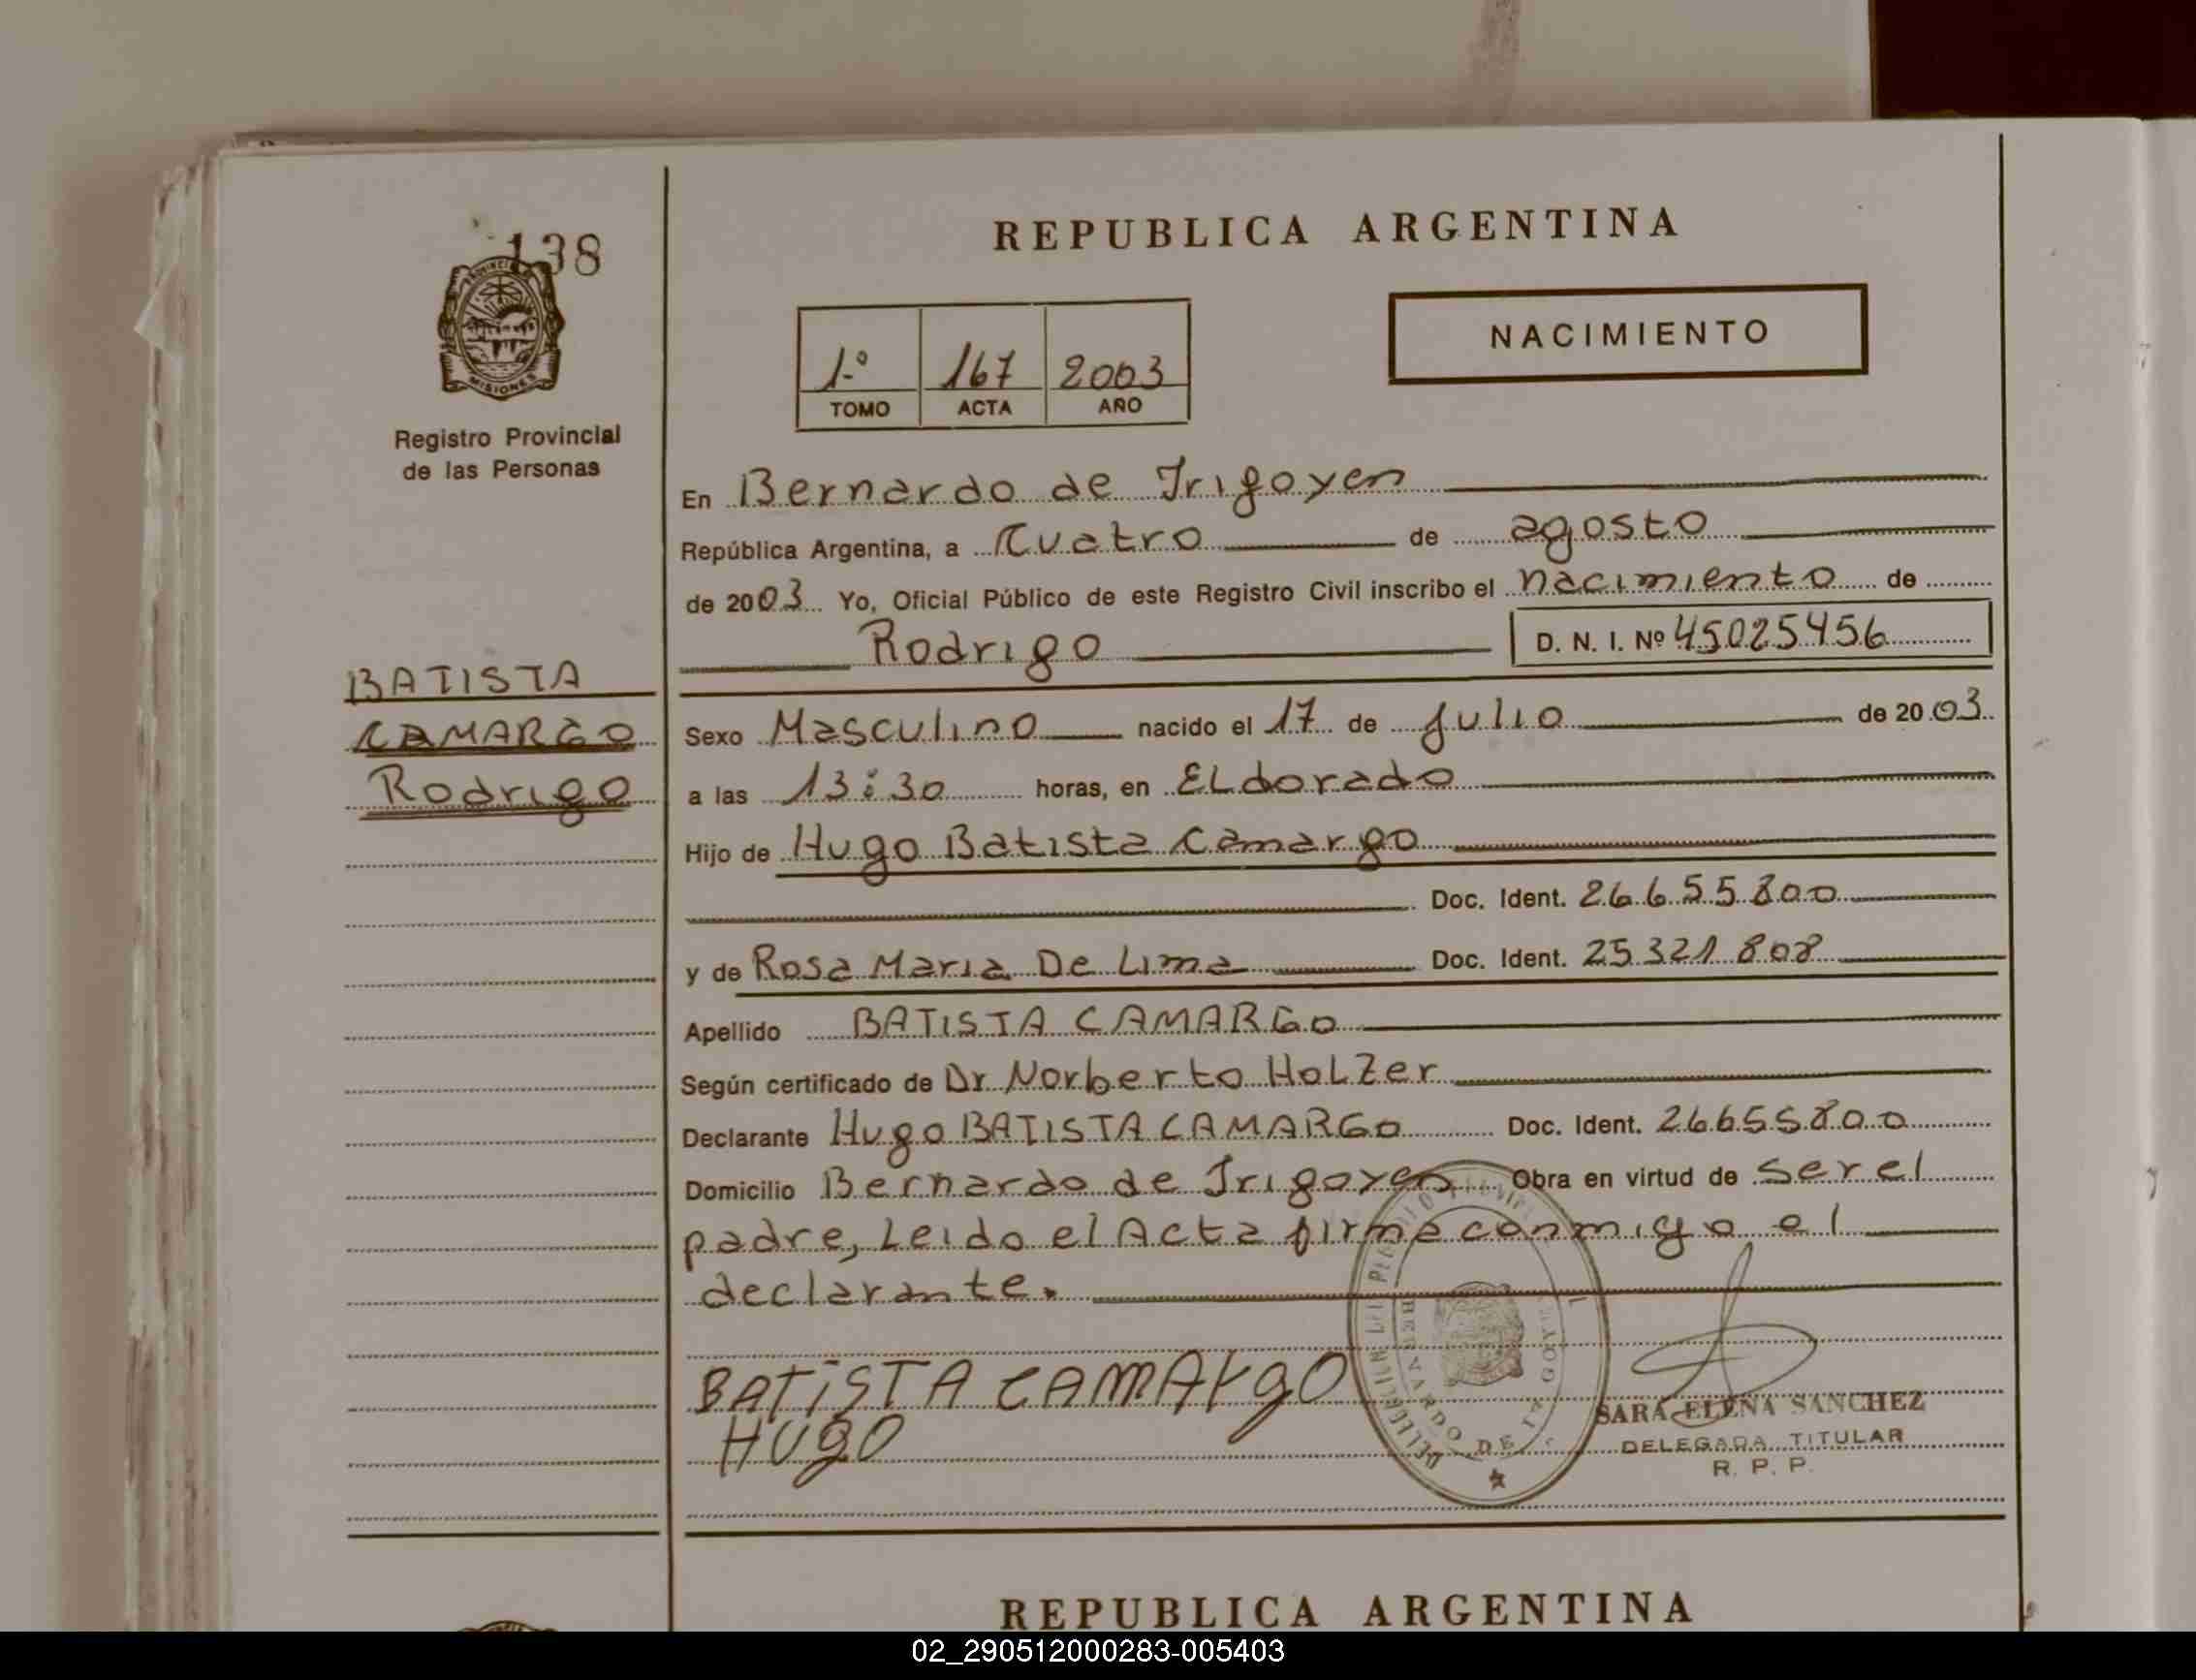 138
PROVINCIA
MISIONES
Registro Provincial
de las Personas
BATISTA
CAMARGO
Rodrigo
REPUBLICA ARGENTINA
1º 167 2003
TOMO ACTA AÑO
NACIMIENTO
En Bernardo de Irigoyen
República Argentina, a Cuatro de agosto
de 2003 Yo, Oficial Público de este Registro Civil inscribo el nacimiento de
Rodrigo D. N. I. Nº 45025456
Sexo Masculino nacido el 17 de Julio de 2003
a las 13:30 horas, en ELdorado
Hijo de Hugo Batista Camargo
Doc. Ident. 26655800
y de Rosa Maria De Lima Doc. Ident. 25321808
Apellido BATISTA CAMARGO
Según certificado de Dr Norberto HoLZer
Declarante Hugo BATISTA CAMARGO Doc. Ident. 26655800
Domicilio Bernardo de Irigoyen Obra en virtud de ser el
padre, Leido el Acta firma conmigo el
declarante.
BATiSTA CAMARgO
HUgO
BERNARDO DE IRIGOYEN
SARA ELENA SANCHEZ
DELEGADA TITULAR
R. P. P.
REPUBLICA ARGENTINA
02_290512000283-005403